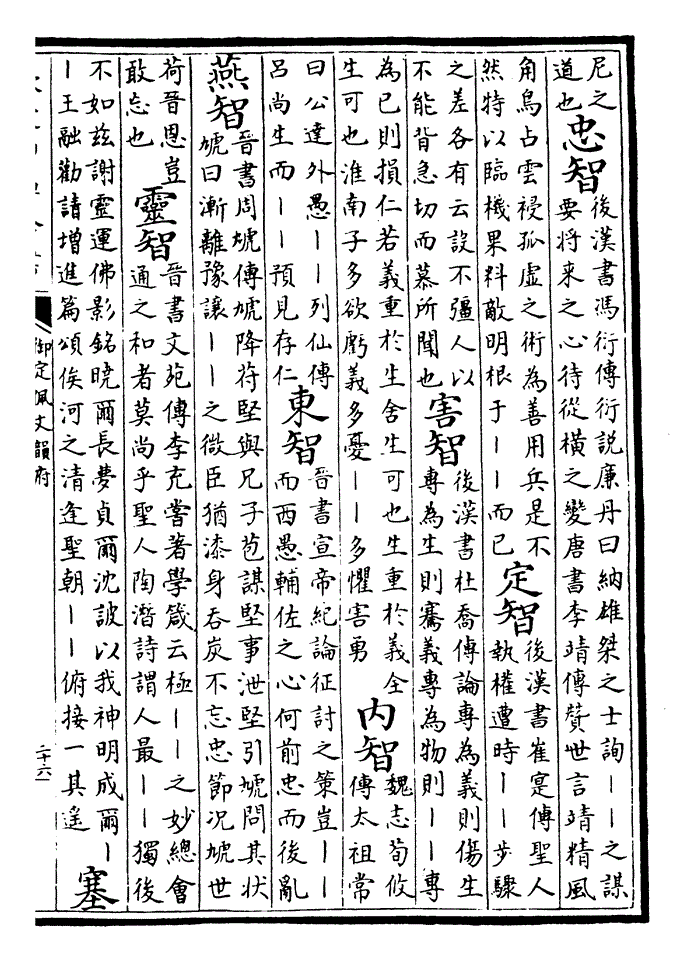 尼之
道也
忠智
後漢書馮衍傳衍說廉丹曰納雄桀之士詢——之謀
要將来之心待從橫之變唐書李靖傳贊世言靖精風
角鳥占雲祲孤虛之術為善用兵是不
然特以臨機果料敵明根于——而已
定智
後漢書崔寔傳聖人
執權遭時——步驟
之差各有云設不彊人以
不能背急切而慕所聞也
害智
後漢書杜喬傳論專為義則傷生
專為生則騫義專為物則——專
為已則損仁若義重於生舍生可也生重於義全
生可也淮南子多欲虧義多憂——多懼害勇
內智
魏志荀攸
傳太祖常
曰公達外愚——列仙傳
呂尚生而——預見存仁
東智
晉書宣帝紀論征討之策豈——
而西愚輔佐之心何前忠而後亂
燕智
晉書周虓傳虓降苻堅與兄子苞謀堅事泄堅引虓問其状
虓曰漸離豫讓——之微臣猶漆身吞炭不忘忠節况虓世
荷晉恩豈
敢忘也
靈智
晉書文苑傳李充嘗著學箴云極——之妙總會
通之和者莫尚乎聖人陶潛詩謂人最——獨後
不如兹謝靈運佛影銘曉爾長夢貞爾沈詖以我神明成爾—
—王融勸請增進篇頌俟河之清逢聖朝——俯接一其遥
塞
御定佩文韻府
二十六